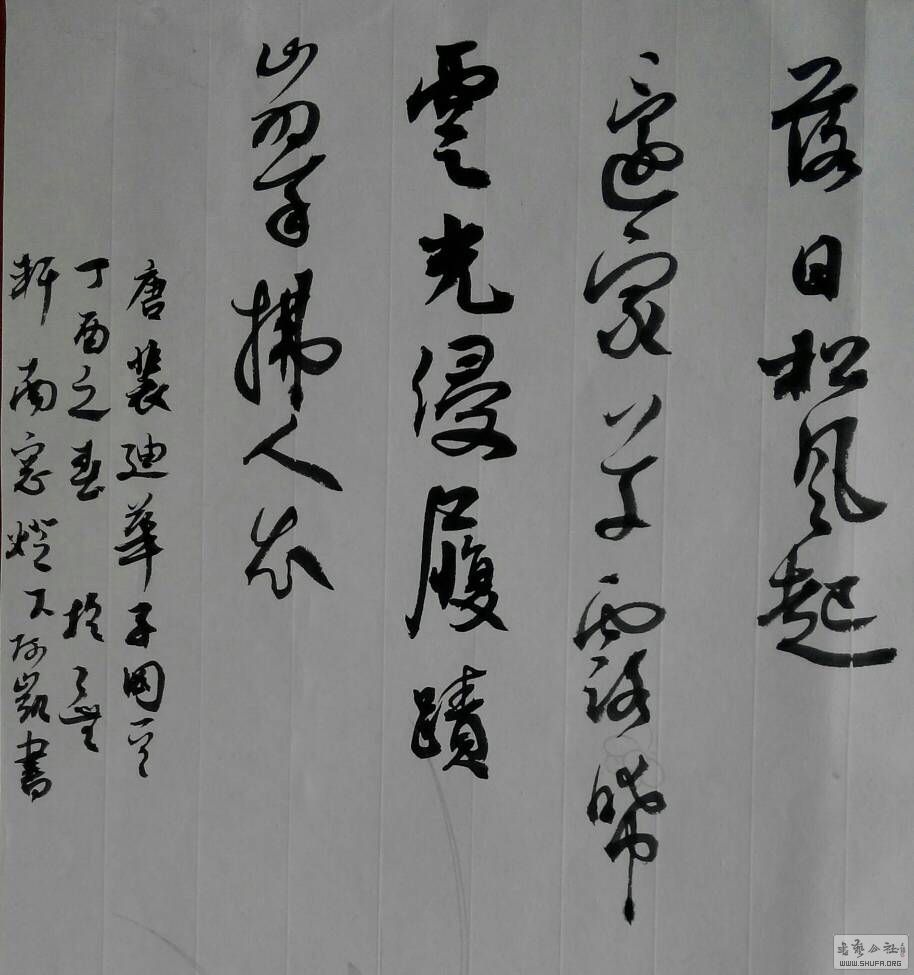 落日松风起
還家草露晞
雲光侵履蹟
山翠拂人衣
唐裴迪華子岡一首
丁酉之春於了無
軒南窓燈下阿凱書
书艺公社
WWW.SHUFA.ORG